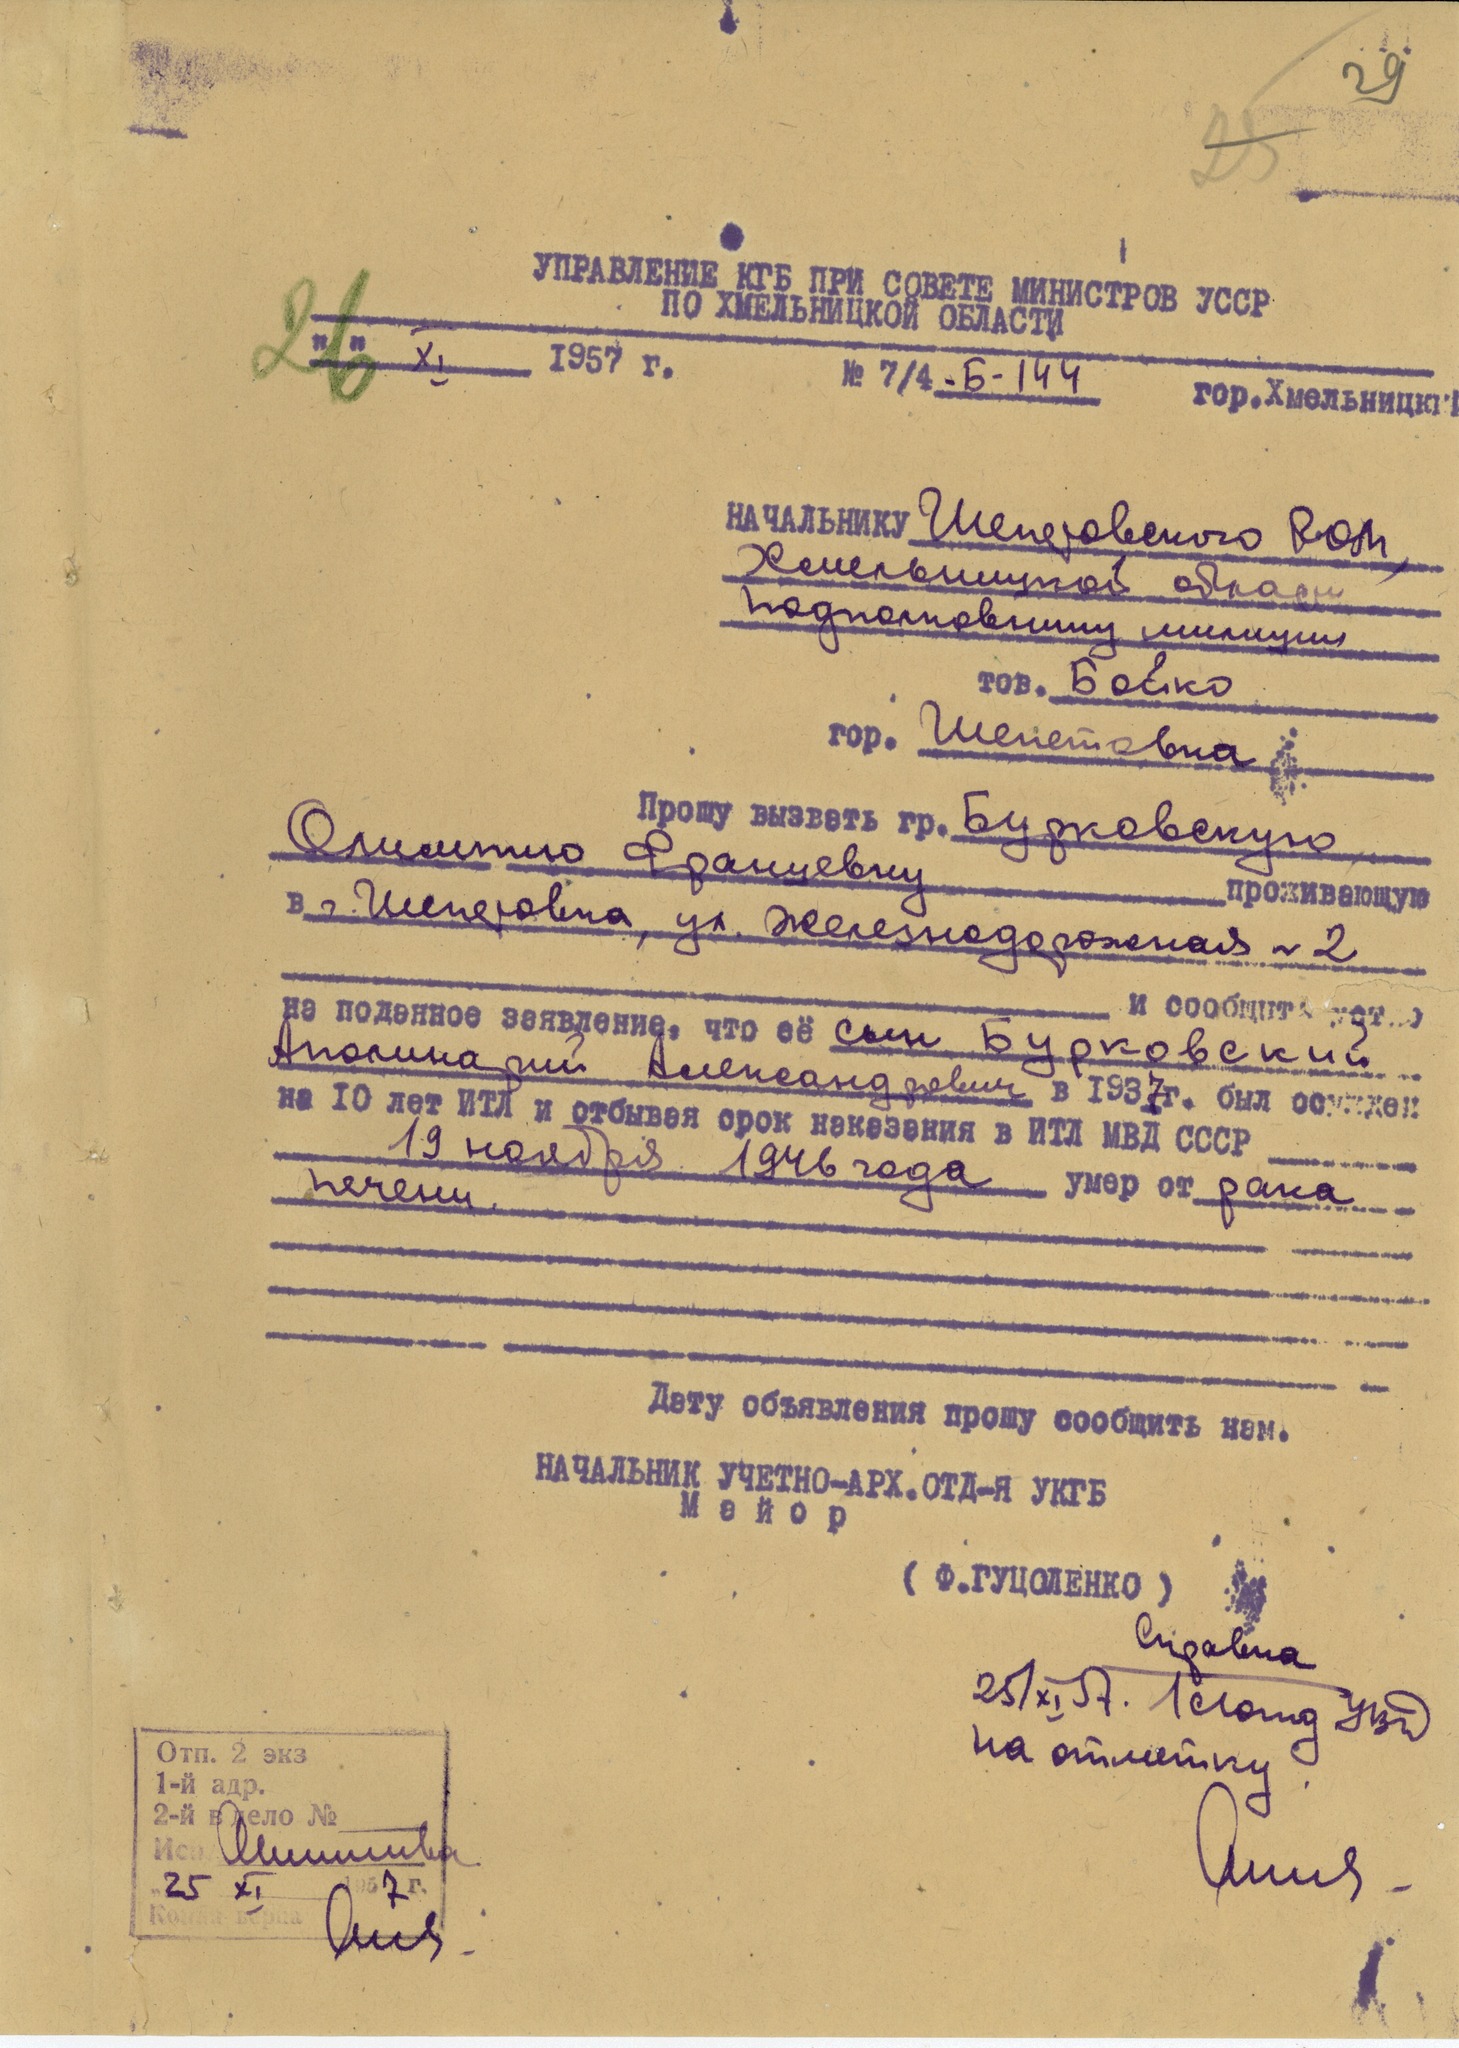 29
25
УПРАВЛЕНИЕ КГБ ПРИ СОВЕТЕ МИНИСТРОВ УССР
ПО ХМЕЛЬНИЦКОЙ ОБЛАСТИ
"26" XI 1957 г. № 7/4 -Б-144 гор.Хмельницкий
НАЧАЛЬНИКУ Шепетовского РОМ,
Хмельницкой области
подполковнику милиции
тов. Бойко
гор. Шепетовка
Прошу вызвать гр. Бурковскую
Олимпию Францевну проживающую
в г. Шепетовка, ул. Железнодорожная № 2
и сообщить
на поданное заявление, что её сын Бурковский
Аполинарий Александрович в 1937г. был осужден
на 10 лет ИТЛ и отбывая срок наказания в ИТЛ МВД СССР
19 ноября 1946 года умер от рака
печени.
Дату объявления прошу сообщить нам.
НАЧАЛЬНИК УЧЕТНО-АРХ.ОТД-Я УКГБ
Майор
( Ф.ГУЦОЛЕНКО )
Справка
25/XI 57. 1 УВД
на отметку.
Отп. 2 экз
1-й адр.
2-й в дело №
Исп.
"25 XI 1957 г.
Копия верна